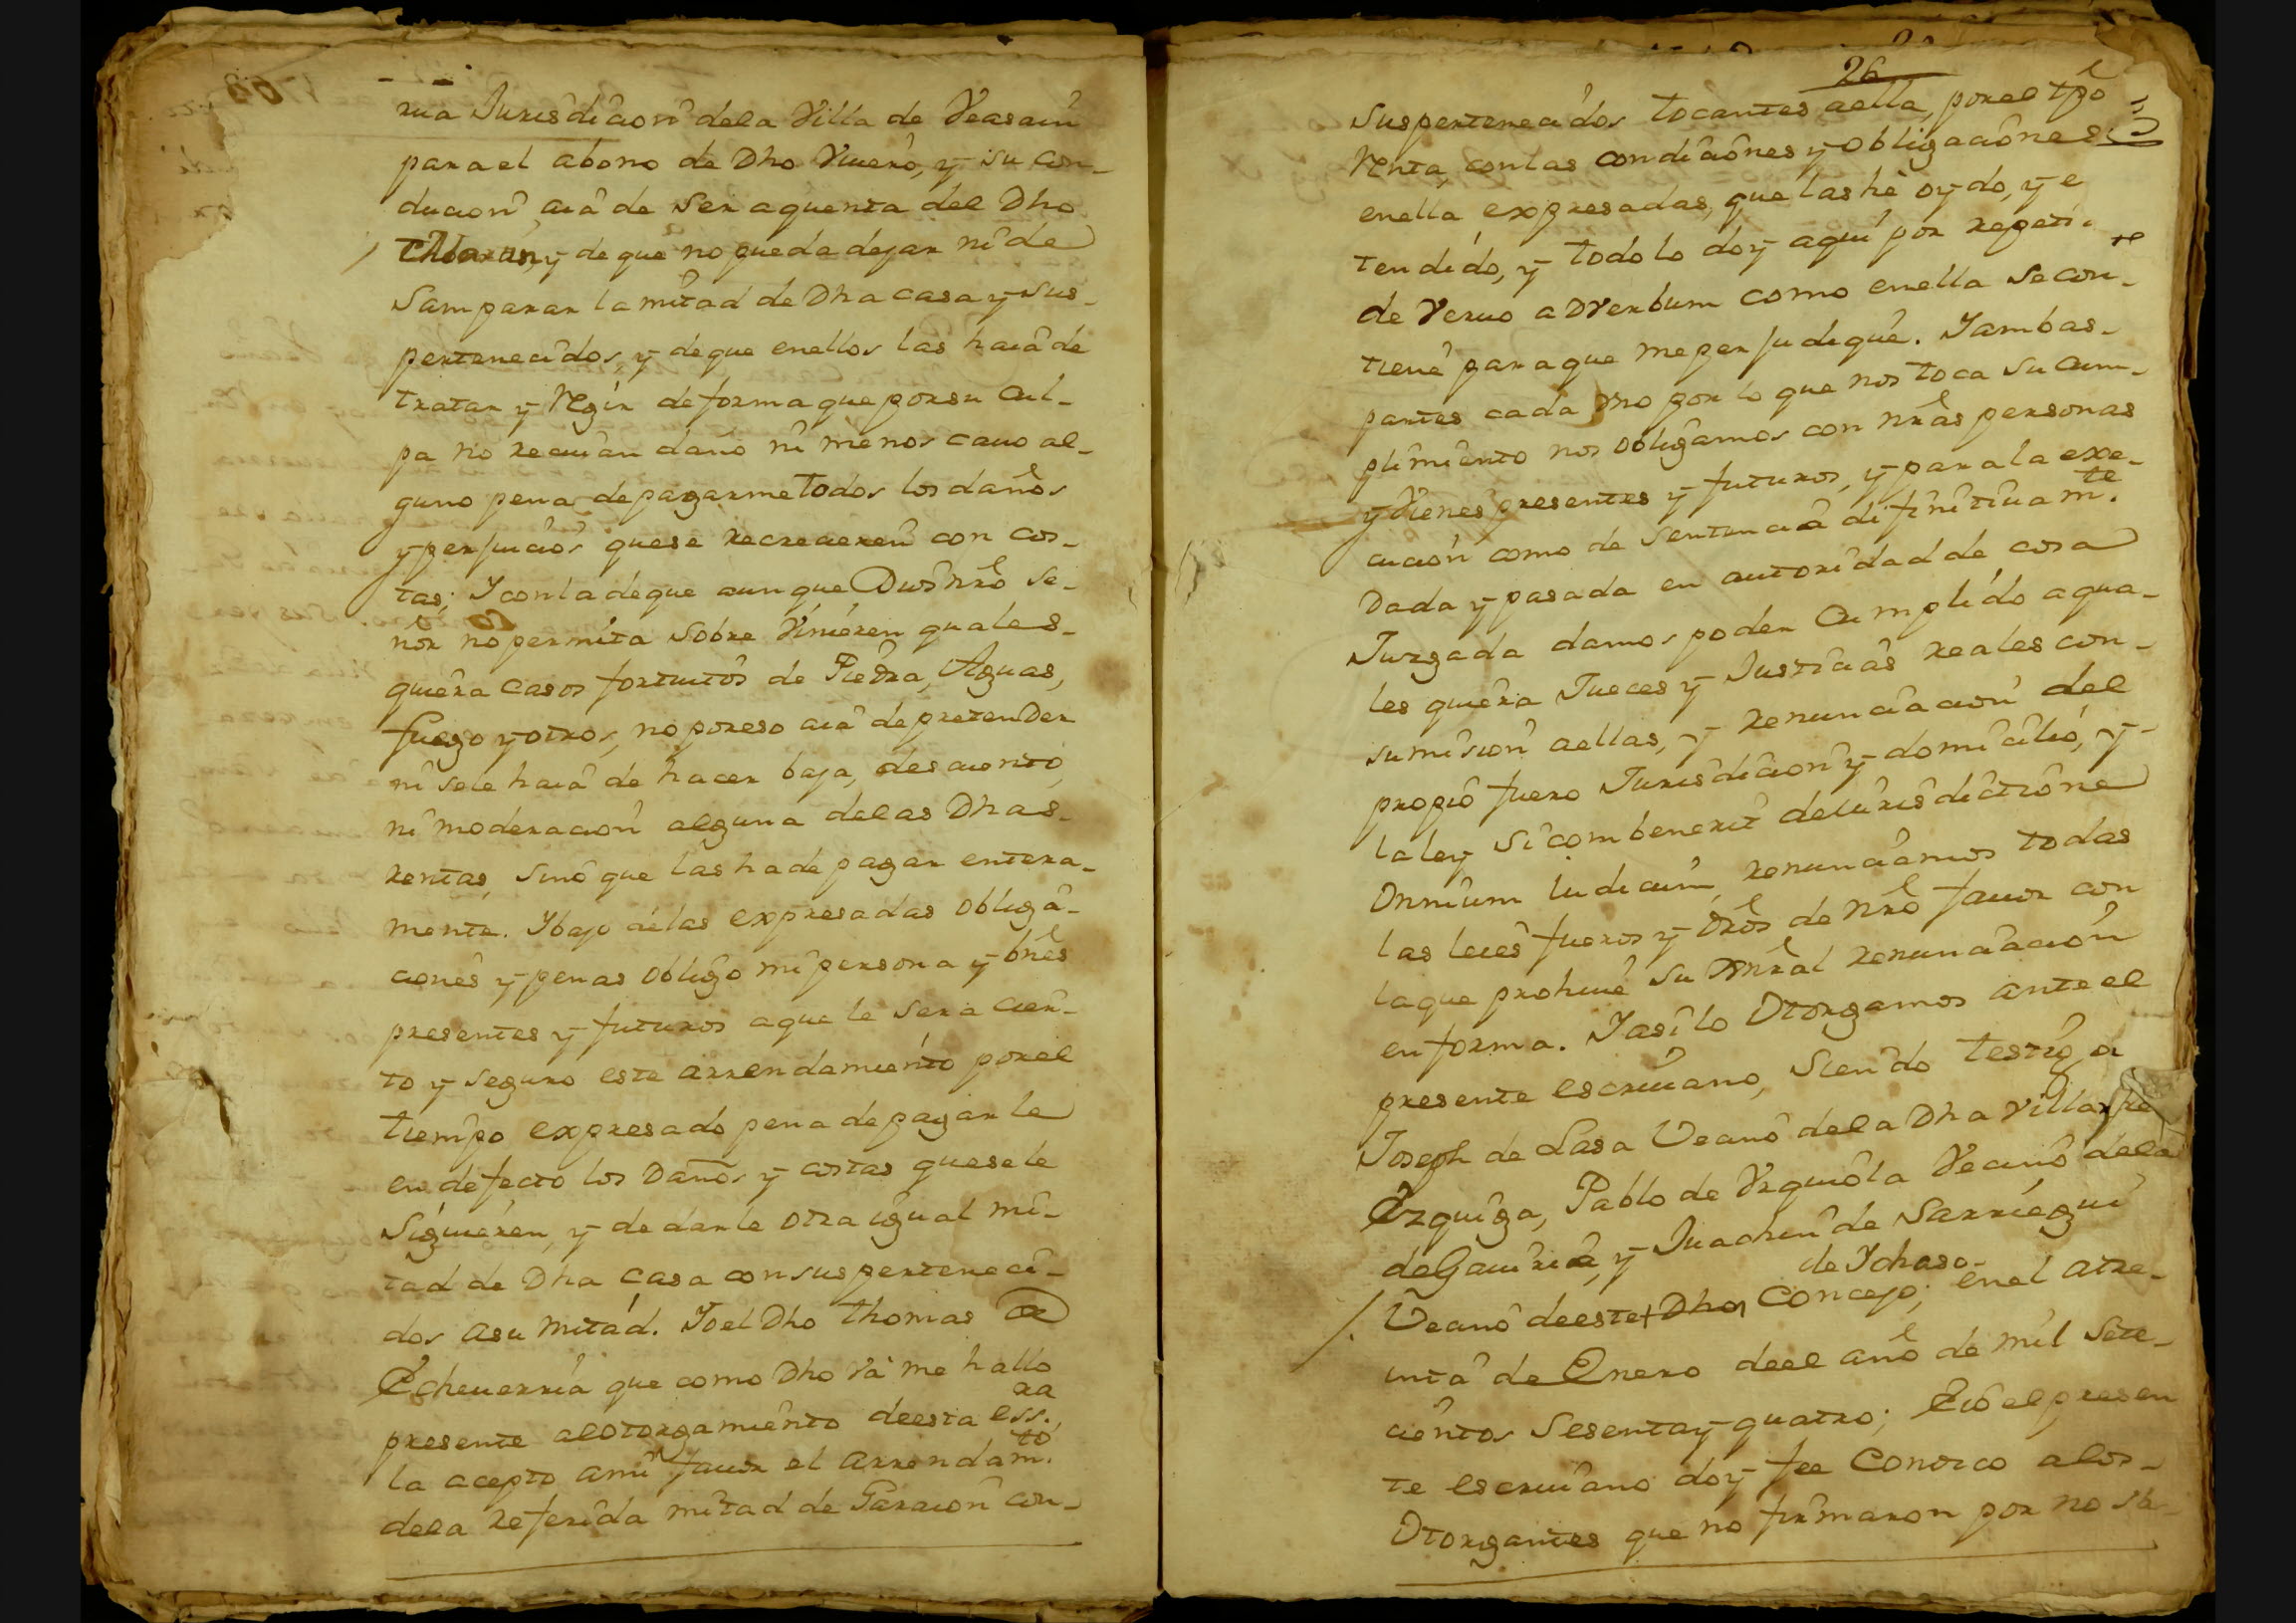 rua Jurisdicion dela Villa de Veasain
para el abono de Dho Viuero, y su con-
ducion aia de ser aquenta del Dho
y de que no pueda dejar ni de
samparar la mitad de Dha casa y sus-
pertenecidos, y deque enellos las haia de
tratar y Regir de forma que porsu cul-
pa no reciuan daño ni menos cauo al-
guno pena de pagarme todos los daños
y perjuicios quese recrecieren con cos-
tas; Y conla deque aunque Dios nro se-
ñor no permita sobre vinieren quales-
quiera casos fortuitos de Piedra, Aguas,
fuego y otros, no poreso aia de pretender
ni sele haia de hacer baja, descuento,
ni moderacion alguna delas Dhas-
rentas, sino que las hade pagar entera-
mente. Y bajo delas expresadas obliga-
ciones y penas obligo mi persona y bnes
presentes y futuros aque le sera cier-
to y seguro este arrendamiento porel
tiempo expresado pena de pagarle
en defecto los Daños y costas quesele
siguieren, y de darle otra igual mi-
tad de Dha casa consusperteneci-
dos asu mitad. Yo el Dho thomas de
Echeuerria que como Dho va me hallo
presente alotorgamiento deesta ess.ra
la acepto ami fauor el arrendam.to
dela referida mitad de Garacion con-
26
suspertenecidos tocantes aella, porel tpo
Renta, conlas condiciones y obligaciones
enella expresadas, que las hè oydo, y e
tendido, y todo lo doy aqui por repeti-
de Veruo adVerbum como enella secon-
tiene para que meperjudique. Yambas-
partes cada vno por lo que nos toca su cum-
plimiento nos obligamos con nras personas
y Vienes presentes y futuros, y para la exe-
cucion como de sentencia difinitiuam.te
Dada y pasada en autoridad de cosa
Juzgada damos poder Cumplido aqua-
les quiera Jueces y Justicias reales con-
sumision aellas, y renunciacion del
propio fuero Jurisdicion y domicilio, y-
la ley sicombenerit deiurisdictione
Omnium Iudicum, renunciamos todas
las leies fueros y dros de nro fauor con
laque prohiue su Gnral renunciacion
en forma. Yasi lo Otorgamos ante el
presente escriuano, siendo testigo
Joseph de Lasa Vecino dela Dha Villa
Ezquiga, Pablo de Vrquiola Vecino dela
de Gauiria, y Juachin de Sarriegui
de Ychaso-
Vecino deeste Dho Concejo; enel atre-
inta de Enero deel año de mil Sete-
cientos Sesentay quatro; Eio elpresen
te escriuano doy fee Conozco alos-
Otorgantes que no firmaron por no sa-